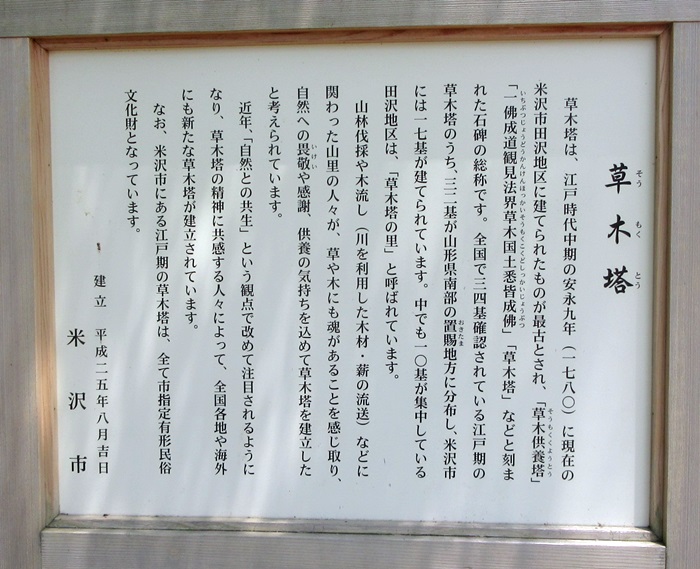 草木塔
そうもくとう
草木塔は、江戸時代中期の安永九年（一七八〇）に現在の
米沢市田沢地区に建てられたものが最古とされ、「草木供養塔」
そうもくくようとう
「一佛成道観見法界草木国土悉皆成佛」「草木塔」などと刻ま
いちぶつじょうどうかんけんほっかいそうもくこくどしっかいじょうぶつ
れた石碑の総称です。全国で三四基確認されている江戸期の
草木塔のうち、三二基が山形県南部の置賜地方に分布し、米沢市
おきたま
には一七基が建てられています。中でも一〇基が集中している
田沢地区は、「草木塔の里」と呼ばれています。
山林伐採や木流し（川を利用した木材・薪の流送）などに
関わった山里の人々が、草や木にも魂があることを感じ取り、
自然への畏敬や感謝、供養の気持ちを込めて草木塔を建立した
いけい
と考えられています。
近年、「自然との共生」という観点で改めて注目されるように
なり、草木塔の精神に共感する人々によって、全国各地や海外
にも新たな草木塔が建立されています。
なお、米沢市にある江戸期の草木塔は、全て市指定有形民俗
文化財となっています。
建立　平成二五年八月吉日
米沢市